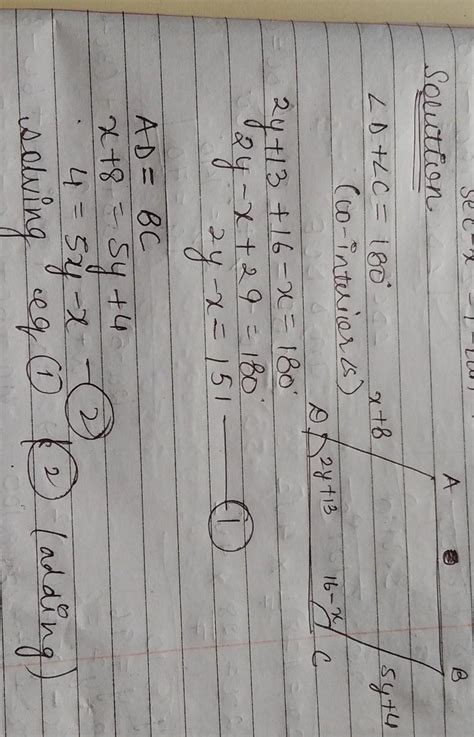 Solution
∠D+∠C = 180°
(co-interior ∠s)
A
B
x+8
5y+4
D
2y+13
16-x
C
2y+13 + 16-x = 180°
2y - x + 29 = 180°
2y - x = 151 — ①
AD = BC
x+8 = 5y+4
4 = 5y - x — ②
solving eq ① & ② (adding)